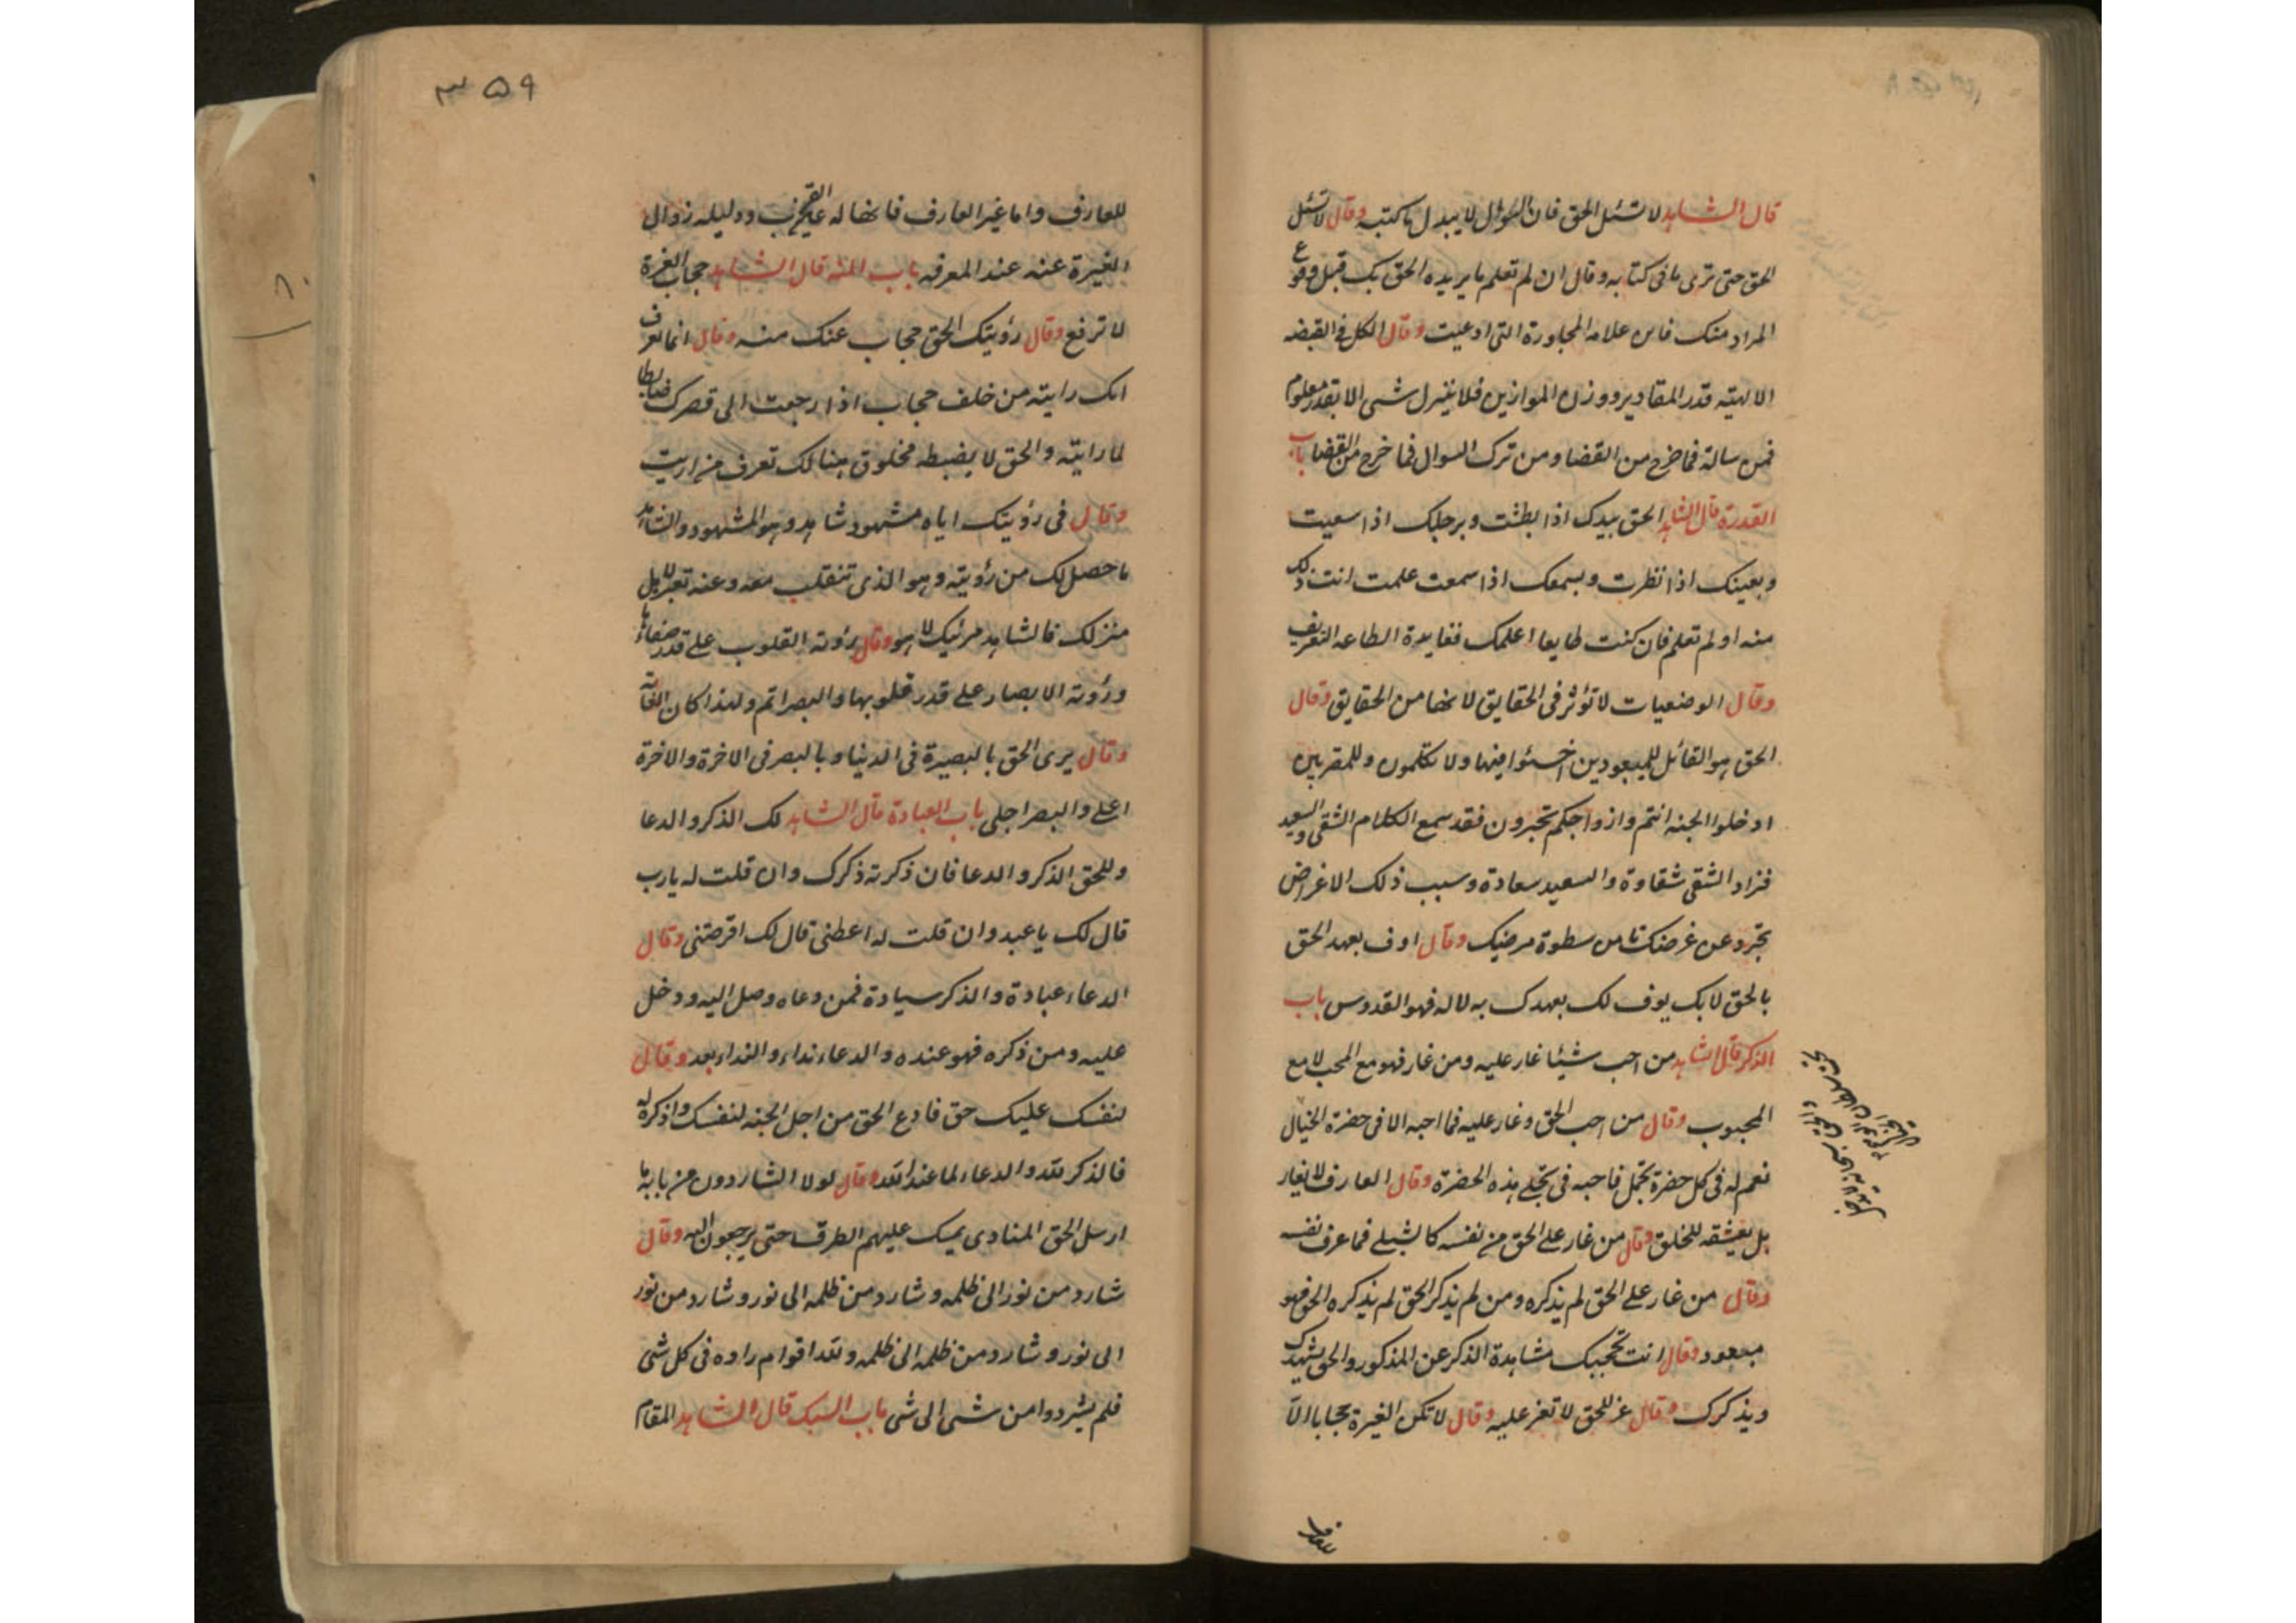 قال الشاهد لا تسئل الحق فان السوال لا يبدل ما كتبه وقال لا تسئل
الحق حتى ترى ما فى كتابه وقال ان لم تعلم ما يريده الحق بك قبل وقوع
المراد منك فاين علامه المجاورة التى ادعيت وقال الكل فى القبضه
الالهيته قدر المقادير ووزن الموازين فلا ينزل شى الا بقدر معلوم
فمن ساله فما خرج من القضا ومن ترك السوال فما خرج من القضا باب
القدرة قال الشاهد الحق بيدك اذا بطشت وبرجلك اذا سعيت
وبعينك اذا نظرت وبسمعك اذا سمعت علمت انت ذلك
منه او لم تعلم فان كنت طايعا اعلمك ففايدة الطاعه التعريف
وقال الوضعيات لا تؤثر فى الحقايق لانها من الحقايق وقال
الحق هو القائل للمبعودين اخسئوا فيها ولا تكلمون وللمقربين
ادخلوا الجنه انتم وازواجكم تحبرون فقد سمع الكلام الشقى والسعيد
فزاد الشقى شقاوة والسعيد سعادة وسبب ذلك الاغراض
تجرد عن غرضك تامن سطوة مرضيك وقال اوف بعهد الحق
بالحق لا بك يوف لك بعهدك به لا له فهو القدوس باب
الذكر قال الشاهد من احب شيئا غار عليه ومن غار فهو مع المحب لا مع
المحبوب وقال من احب الحق وغار عليه فما احبه الا فى حضرة الخيال
نعم له فى كل حضرة تجمل فاحبه فى تجلى هذه الحضرة وقال العارف لا يغار
بل يعشقه للخلق وقال من غار على الحق من نفسه كالشبلى فما عرف نفسه
وقال من غار على الحق لم يذكره ومن لم يذكر الحق لم يذكره الحق فهو
مبعود وقال انت تحجبك مشاهدة الذكر عن المذكور والحق يشهدك
ويذكرك وقال غر للحق لا تغر عليه وقال لا تكن الغيرة حجابا الا
٣٥٩
للعارف واما غير العارف فانها له ودليله زوال
الغيرة عنه عند المعرفه باب المنه قال الشاهد حجاب العزة
لا ترفع وقال رؤيتك الحق حجاب عنك منه وقال انما تعرف
انك رايته من خلف حجاب اذا رجعت الى قصرك ضابطا
لما رايته والحق لا يضبطه مخلوق هنالك تعرف من رايت
وقال فى رؤيتك اياه مشهود شاهد وهو المشهود والشاهد
ما حصل لك من رؤيته وهو الذى تنقلب معه وعنه تعبر لاهل
منزلك فالشاهد مرئيك لا هو وقال رؤية القلوب على قدر صفائها
ورؤية الابصار على قدر قلوبها والبصر اتم ولهذا كان
وقال يرى الحق بالبصيرة فى الدنيا وبالبصر فى الاخرة والاخرة
اعلى والبصر اجلى باب العبادة قال الشاهد لك الذكر والدعا
وللحق الذكر والدعا فان ذكرته ذكرك وان قلت له يارب
قال لك يا عبد وان قلت له اعطنى قال لك اقرضنى وقال
الدعاء عبادة والذكر سيادة فمن دعاه وصل اليه ودخل
عليه ومن ذكره فهو عنده والدعاء نداء والنداء بعد وقال
لنفسك عليك حق فادع الحق من اجل الجنه لنفسك واذكره له
فالذكر لله والدعاء لما عند الله وقال لولا الشاردون من بابه ما
ارسل الحق المنادى يمسك عليهم الطرق حتى يرجعون اليه وقال
شارد من نور الى ظلمه وشارد من ظلمه الى نور وشارد من نور
الى نور وشارد من ظلمه الى ظلمه ولله اقوام راوه فى كل شى
فلم يشردوا من شى الى شى باب السبك قال الشاهد المقام